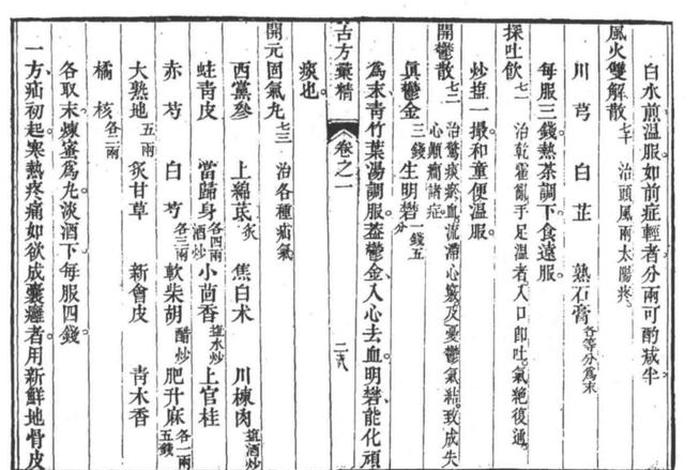 白水煎温服如前症輕者分兩可酌減半
風火雙解散 七十 治頭風兩太陽疼
川芎 白芷 熟石膏 各等分爲末
每服三錢熱茶調下食遠服
探吐飲 七一 治乾霍亂手足温者入口即吐氣絶復通
炒塩一撮和童便温服
開鬱散 七二 治驚痰瘀血流滯心竅及憂鬱氣結致成失
心顛癇諸症
眞鬱金 三錢 生明礬 一錢五分
爲末青竹葉湯調服葢鬱金入心去血明礬能化頑
古方彙精 卷之一 二八
痰也
開元固氣丸 七三 治各種疝氣
西黨參 上綿茋 炙 焦白术 川楝肉 塩酒炒
蛙青皮 當歸身 各四兩酒炒 小茴香 塩水炒 上官桂
赤芍 白芍 各三兩 軟柴胡 醋炒 肥升麻 各一兩五錢
大熟地 五兩 炙甘草 新會皮 青木香
橘核 各二兩
各取末煉蜜爲丸淡酒下每服四錢
一方疝初起寒熱疼痛如欲成囊癰者用新鮮地骨皮